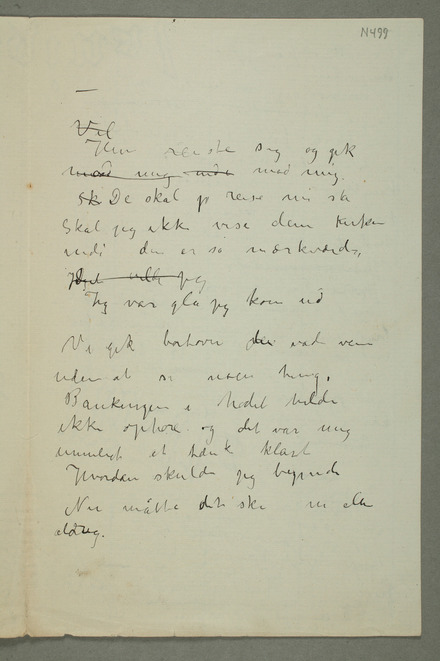 N499
—
Vil
Hun reiste sig og gik
mod mig med mig.
Sk De skal jo reise nu sa
Skal jeg ikke vise dem kirken
indi den er så mærkværdi,
jeg
Jeg var gla jeg kom ud
Vi gik bortover den veien
uden at si noen ting.
Bankingen i hodet vilde
ikke ophøre og det var mig
umuligt at tænk klart
Hvordan skulde jeg begynde
Nu måtte det ske nu eller
aldrig.